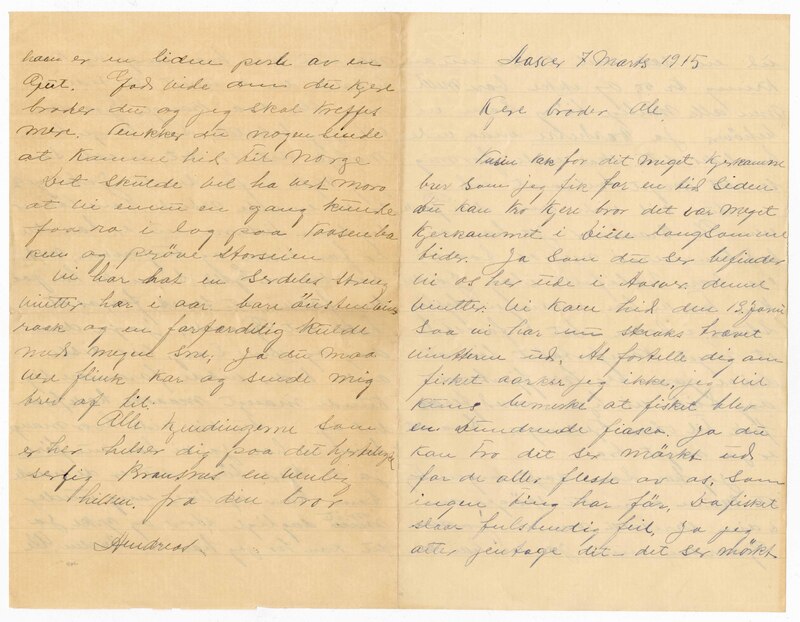 Aasver 7 Marts 1915
Kjere broder Ole!
Tusin tak for dit meget kjerkomne
brev som jeg fik for en tid siden
du kan tro kjere bror det var meget
kjerkommet i disse langsomme
tider. Ja som du ser befinder
vi os her ude i Aasver denne
vinter. Vi kom hid den 13 Januar
saa vi har nu straks trævet
vinteren ud. At fortelle dig om
fisket aarker jeg ikke, jeg vil
kuns bemerke at fisket blev
en dundrende fiasco. Ja du
kan tro det ser mörkt ud
for de aller fleste av os, som
ingen ting har för, da fisket
slaar fulstendig feil. Ja jeg
atter jentage det - det ser mörkt
haan er en liden perle av en
Gut. Gud vide om du kjere
broder du og jeg skal treffes
mere. Tenkker du nogensinde
at komme hid til Norge
Det skulde vel ha vert moro
at vi ennu en gang kunde
faa ro i lag paa Taasenba
ken og pröve storseien
Vi har hat en serdeles streng
vinter her i aar, bare önstenvin
rask og en forferdelig kulde
med megen sne. Ja du maa
vere flink kar og sende mig
brev af til.
Alle kjendingerne som
er her hilser dig paa det hjerteligste
serlig Brausnes en venlig
hilsen fra din bror
Andreas